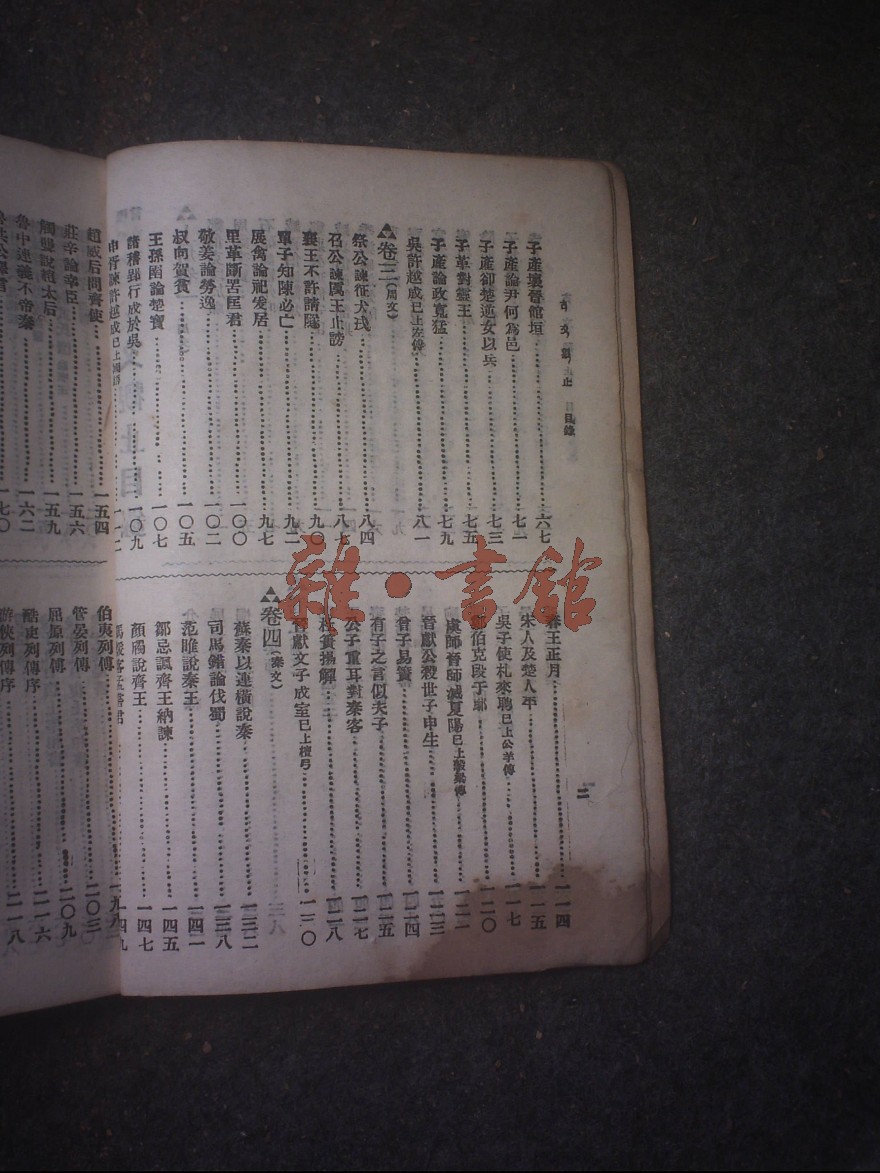 古文觀止 目錄
二
子產壞晉館垣 六七
子產論尹何爲邑 七一
子產卻楚逆女以兵 七三
子革對靈王 七五
子產論政寬猛 七九
吳許越成已上左傳 八一
卷三(周文)
祭公諫征犬戎 八四
召公諫厲王止謗 八七
襄王不許請隧 九〇
單子知陳必亡 九二
展禽論祀爰居 九七
里革斷罟匡君 一〇〇
敬姜論勞逸 一〇二
叔向賀貧 一〇五
王孫圉論楚寶 一〇七
諸稽郢行成於吳 一〇九
申胥諫許越成已上國語 一一二
春王正月 一一四
宋人及楚人平 一一五
吳子使札來聘已上公羊傳 一一七
鄭伯克段于鄢 一二〇
虞師晉師滅夏陽已上穀梁傳 一二一
晉獻公殺世子申生 一二三
曾子易簀 一二四
有子之言似夫子 一二五
公子重耳對秦客 一二七
杜蕢揚觶 一二八
晉獻文子成室已上檀弓 一三〇
卷四(秦文)
蘇秦以連橫說秦 一三二
司馬錯論伐蜀 一三八
范睢說秦王 一四一
鄒忌諷齊王納諫 一四五
顏斶說齊王 一四七
馮煖客孟嘗君 一四九
趙威后問齊使 一五四
莊辛論幸臣 一五六
觸讋說趙太后 一五九
魯仲連義不帝秦 一六二
魯共公擇言 一七〇
伯夷列傳 一九八
管晏列傳 二〇三
屈原列傳 二〇九
酷吏列傳序 二一六
游俠列傳序 二一八
雜·書館